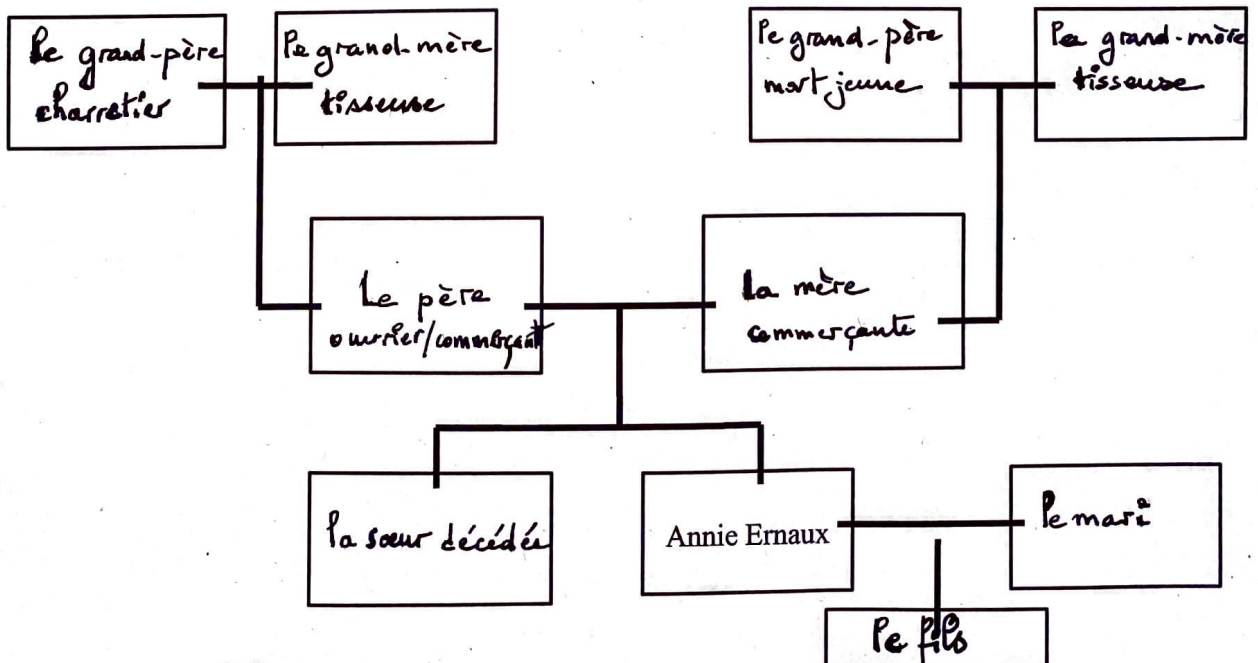 Le grand-père
charretier
La grand-mère
tisseuse
Le grand-père
mort jeune
La grand-mère
tisseuse
Le père
ouvrier/commerçant
La mère
commerçante
la sœur décédée
Annie Ernaux
le mari
le fils